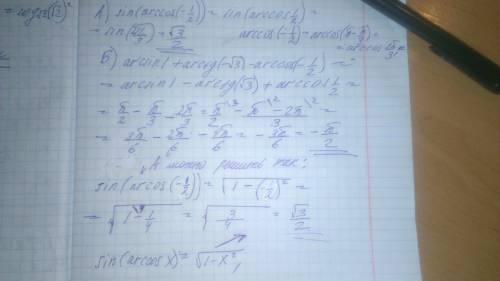 = log₂(√3)²
А) sin(arccos(-1/2)) = sin(arccos 1/2) =
= sin(2π/3) = √3/2
arccos(-1/2) = arccos(π - π/3) =
Б) arcsin 1 + arcctg(-√3) - arccos(-1/2) =
= arcsin 1 - arcctg(√3) + arccos 1/2 =
= π/2 - π/3 - 2π/3 = π\3/2 - π\2 - 2π\2/3 =
= 3π/6 - 2π/6 - 4π/6 = - 3π/6 = - π/2
А можно решить так:
sin(arccos(-1/2)) = √(1 - (-1/2)²) =
= √(1 - 1/4) = √(3/4) = √3/2
sin(arccos x) = √(1-x²),